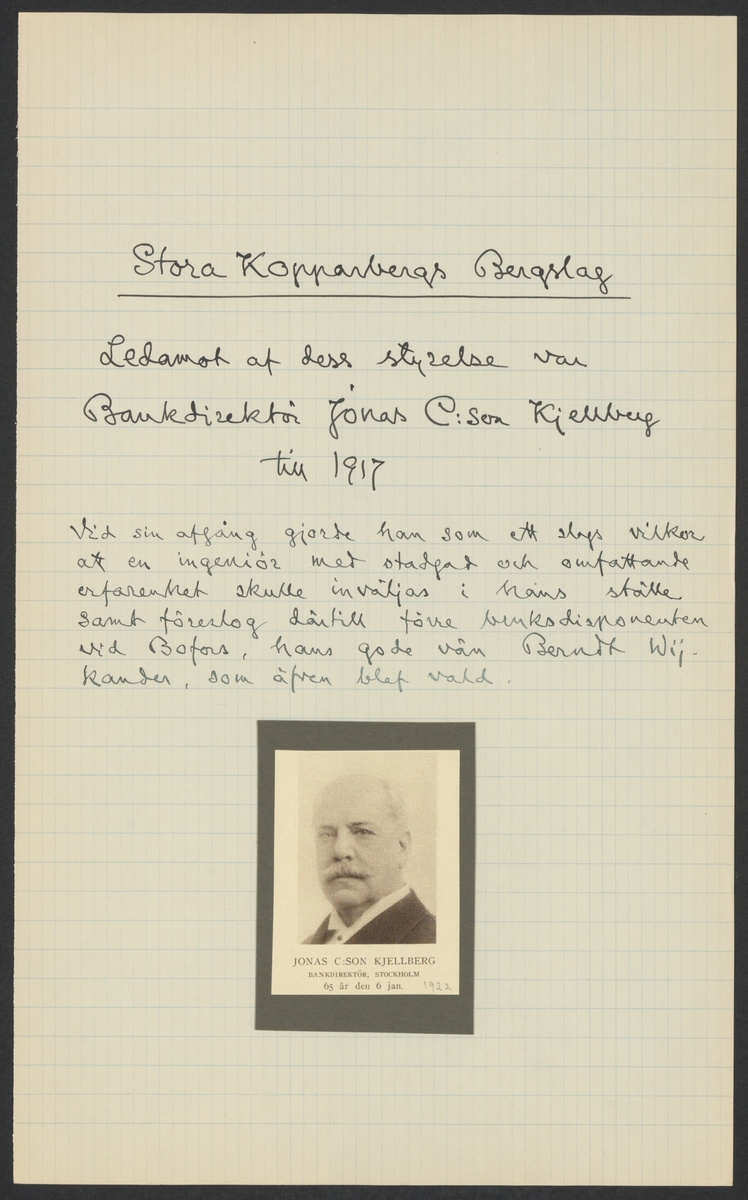 Stora Kopparbergs Bergslag
Ledamot af dess styrelse var
Bankdirektör Jonas C:son Kjellberg
till 1917
Vid sin afgång gjorde han som ett slags vilkor
att en ingeniör med stadgad och omfattande
erfarenhet skulle inväljas i hans ställe
samt föreslog därtill förre bruksdisponenten
vid Bofors, hans gode vän Berndt Wij-
kander, som äfven blef vald.
JONAS C:SON KJELLBERG
BANKDIREKTÖR, STOCKHOLM
65 år den 6 jan. 1922